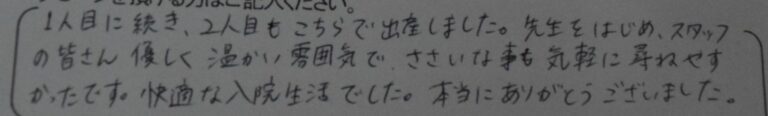 1人目に続き、2人目もこちらで出産しました。先生をはじめ、スタッフ
の皆さん優しく温かい雰囲気で、ささいな事も気軽に尋ねやす
かったです。快適な入院生活でした。本当にありがとうございました。